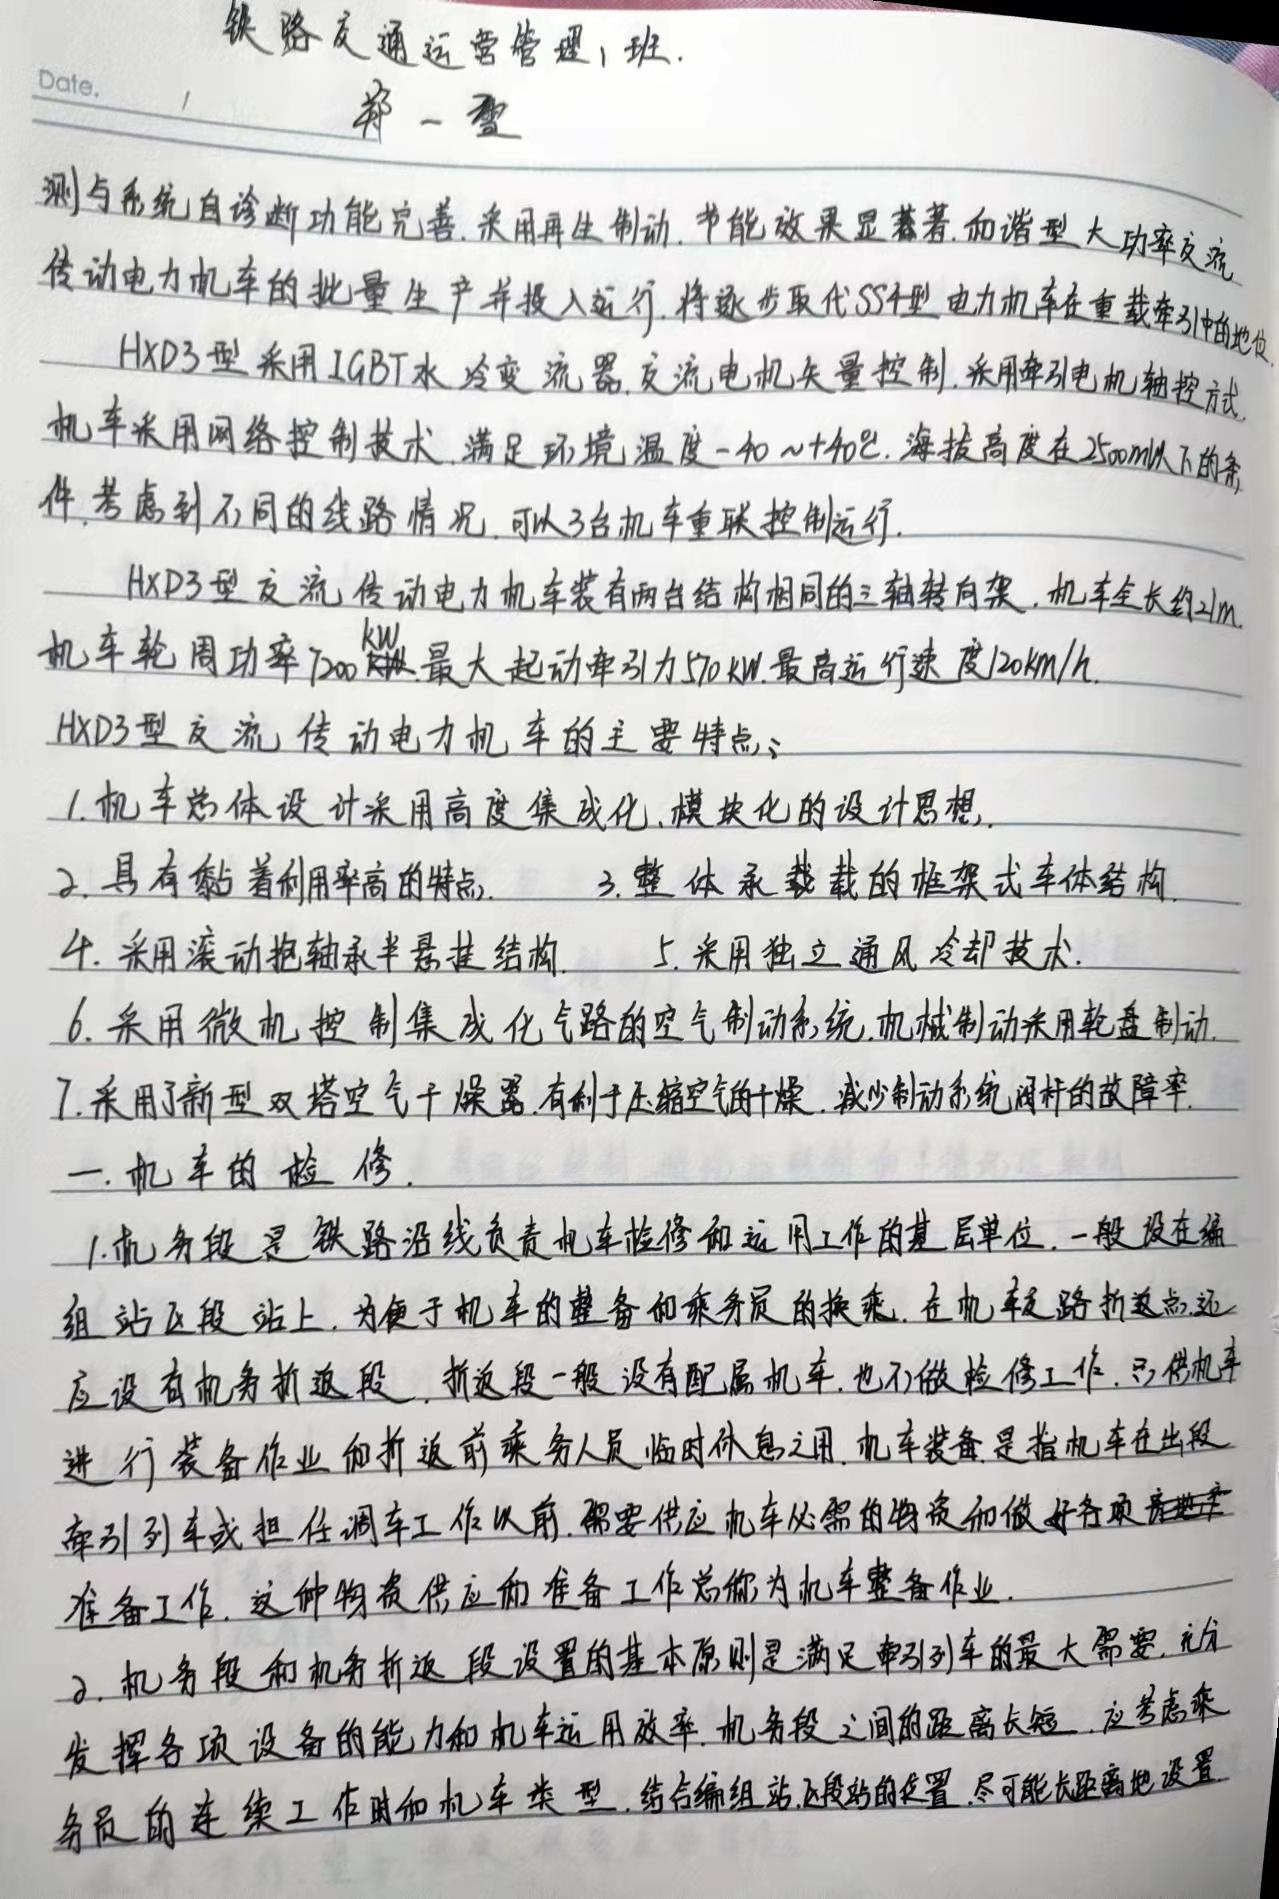 铁路交通运营管理1班.
郑一雪
Date.
测与系统自诊断功能完善.采用再生制动.节能效果显著.和谐型大功率交流
传动电力机车的批量生产并投入运行.将逐步取代SS4型电力机车在重载牵引中的地位.
HXD3型采用IGBT水冷变流器.交流电机矢量控制.采用牵引电机轴控方式.
机车采用网络控制技术.满足环境温度-40~+40℃.海拔高度在2500m以下的条
件.考虑到不同的线路情况.可以3台机车重联控制运行.
HXD3型交流传动电力机车装有两台结构相同的三轴转向架.机车全长约21m.
机车轮周功率7200kW.最大起动牵引力570kW.最高运行速度120km/h.
HXD3型交流传动电力机车的主要特点:
1.机车总体设计采用高度集成化、模块化的设计思想.
2.具有黏着利用率高的特点. 3.整体承载的框架式车体结构.
4.采用滚动抱轴承半悬挂结构. 5.采用独立通风冷却技术.
6.采用微机控制集成化气路的空气制动系统.机械制动采用轮盘制动.
7.采用了新型双塔空气干燥器.有利于压缩空气的干燥.减少制动系统阀件的故障率.
一.机车的检修.
1.机务段是铁路沿线负责机车检修和运用工作的基层单位.一般设在编
组站区段站上.为便于机车的整备和乘务员的换乘.在机车交路折返点还
应设有机务折返段.折返段一般没有配属机车.也不做检修工作.只供机车
进行装备作业和折返前乘务人员临时休息之用.机车装备是指机车在出段
牵引列车或担任调车工作以前.需要供应机车必需的物资和做好各项
准备工作.这种物资供应和准备工作总称为机车整备作业.
2.机务段和机务折返段设置的基本原则是满足牵引列车的最大需要.充分
发挥各项设备的能力和机车运用效率.机务段之间的距离长短.应考虑乘
务员的连续工作时和机车类型.结合编组站.区段站的位置.尽可能长距离地设置.